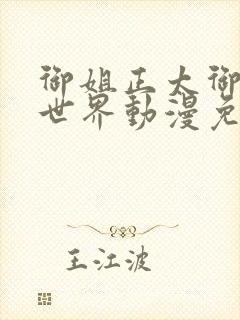 御姐正大御
世界動漫免
王江波